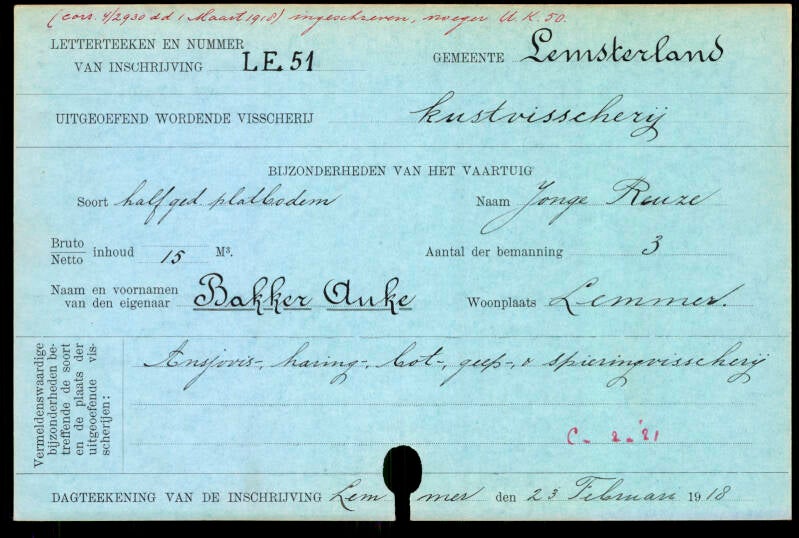 (corr. 4/2930 dd 1 Maart 1918) ingeschreven, vroeger U.K. 50.
LETTERTEEKEN EN NUMMER VAN INSCHRIJVING LE 51 GEMEENTE Lemsterland
UITGEOEFEND WORDENDE VISSCHERIJ kustvisscherij
BIJZONDERHEDEN VAN HET VAARTUIG
Soort half ged platbodem Naam Jonge Reuze
Bruto
Netto inhoud 15 M³. Aantal der bemanning 3
Naam en voornamen
van den eigenaar Bakker Auke Woonplaats Lemmer.
Vermeldenswaardige
bijzonderheden be-
treffende de soort
en de plaats der
uitgeoefende vis-
scherijen:
Ansjovis-, haring-, bot-, geep-, & spieringvisscherij
C - 2 - '21
DAGTEEKENING VAN DE INSCHRIJVING Lemmer den 23 Februari 1918